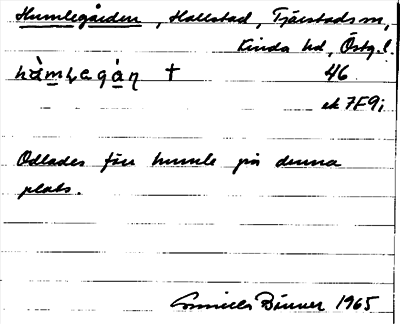 Humlegården, Hallstad, Tjärstads sn,
Kinda hd, Östg.l.
hàmlagàṇ † 46
ek 7F9i
Odlades förr humle på denna
plats.
Gunilla Bünner 1965